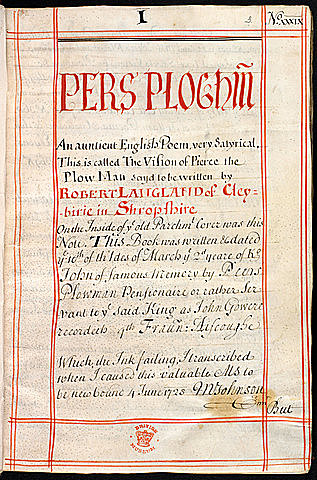 I
3.
No. XXIX
PERS PLOGHM̃
An auntient English Poem, very Satyrical.
This is called The Vision of Pierce the
Plow Man sayd to be written by
ROBERT LANGLAND of Cley-
birie in Shropshire
On the Inside of yᵉ old Parchmᵗ Cover was this
Note. This Book was written & dated
yᵉ 10ᵗʰ of thᵉ Ides of March yᵉ 2ᵈ yeare of Kᵍ
John of famous Memory by Peens
Plowman Pensionaire or rather Ser
vant to yᵉ said King as John Gowere
recordeth qᵗʰ Fraun: Aiscoughe
Which, the Ink fading, I transcribed
when I caused this valuable MS to
be new bound 4 June 1728 MJohnson
BRITISH
MUSEUM